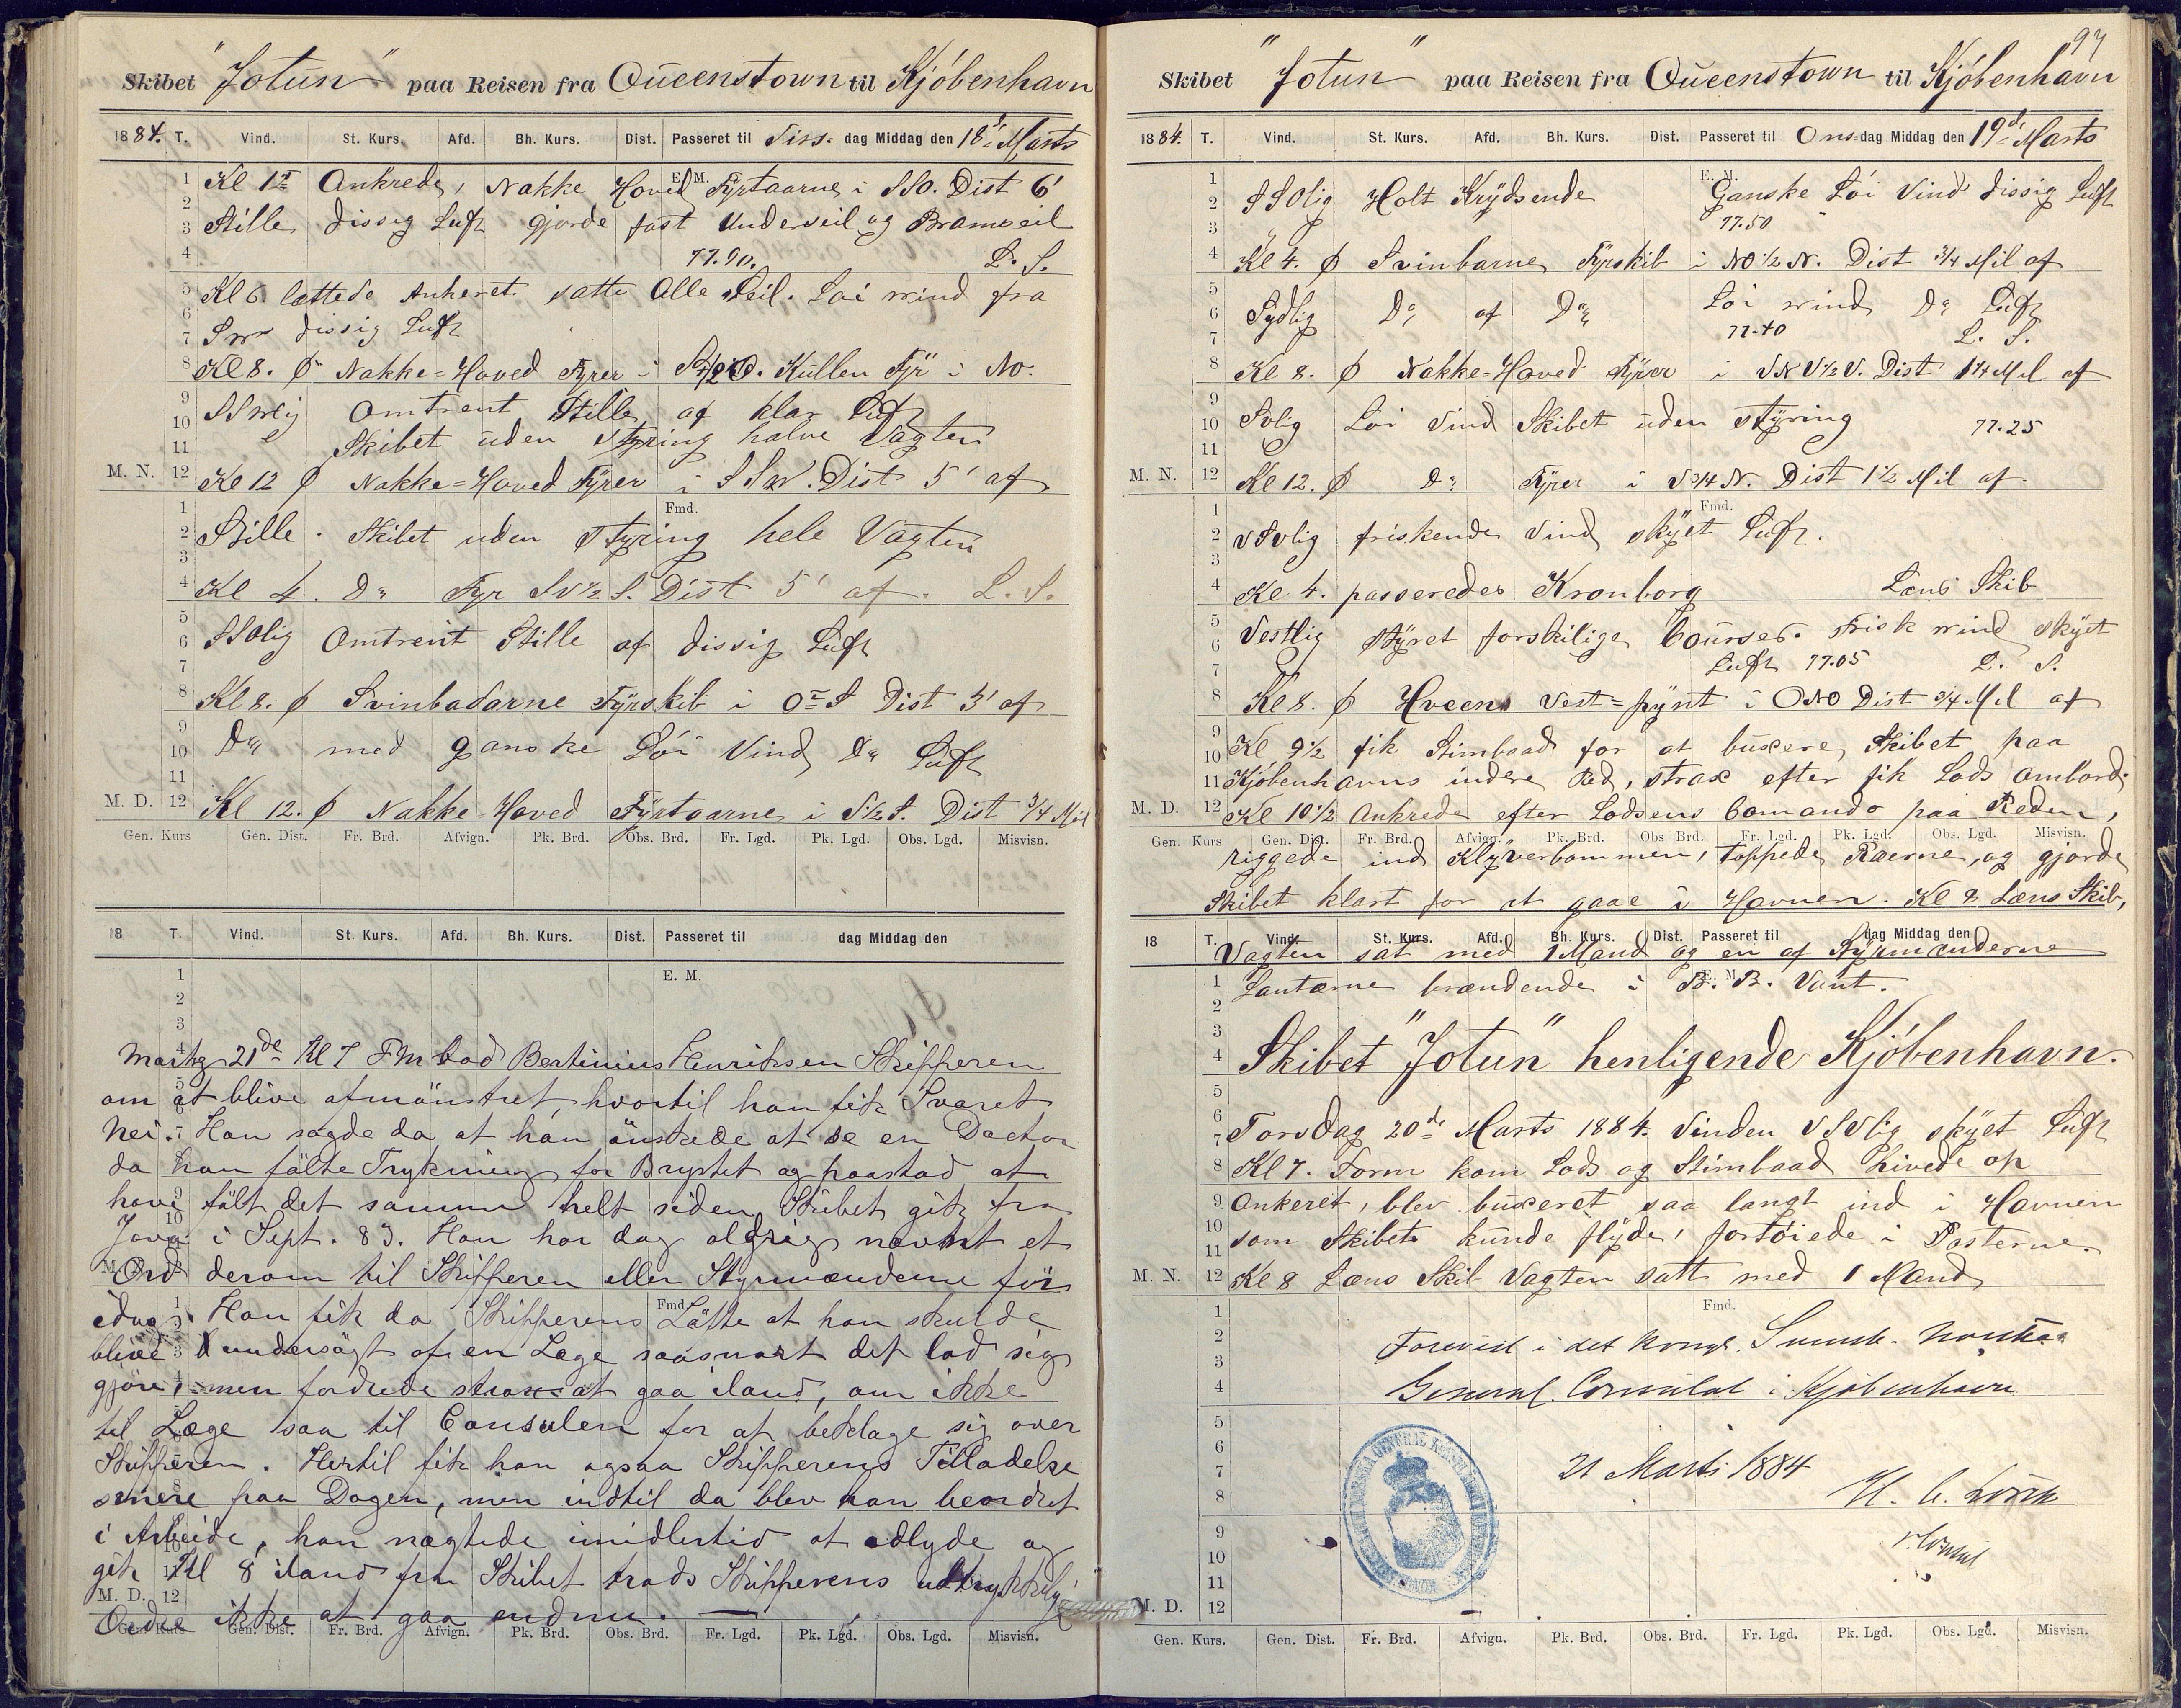 Skibet "Jotun" paa Reisen fra Queenstown til Kjöbenhavn
1884. T. Vind. St. Kurs. Afd. Bh. Kurs. Dist. Passeret til Tirs- dag Middag den 18d Marts
E. M.
1 Kl 1 Ankrede, Nakke Hoved Fyrtaarne i SSO. Dist 6'
2
3 Stille, dissig Luft gjorde fast Underseil og Bramseil
4 77.90. L. S.
5 Kl 6 lettede Ankeret satte Alle Seil. Löi wind fra
6
7 SW dissig Luft
8 Kl 8. ϕ Nakke=Hoved Fyrer i Kullen Fyr i No.
9
10 SSWlig Omtrent Stille, af klar Luft
11 Skibet uden Styring halve Vagten
M. N. 12 Kl 12 ϕ Nakke=Hoved Fyrer i SSW. Dist 5' af
Fmd.
1
2 Stille. Skibet uden Styring hele Vagten
3
4 Kl 4. Do Fyr SV½S. Dist 5' af. L. S.
5
6 SSOlig Omtrent Stille af dissig Luft
7
8 Kl 8. ϕ Svinbadarne Fyrskib i O=S Dist 3' af
9
10 Do med ganske Löi Vind Do Luft
11
M. D. 12 Kl 12. ϕ Nakke-Hoved Fyrtaarne i S½S. Dist 3/4 Mil
Gen. Kurs Gen. Dist. Fr. Brd. Afvign. Pk. Brd. Obs. Brd. Fr. Lgd. Pk. Lgd. Obs. Lgd. Misvisn.
18 T. Vind. St. Kurs. Afd. Bh. Kurs. Dist. Passeret til dag Middag den
1 E. M.
2
3
Marts 21de Kl 7 FM bad Bertinius Henriksen Skipperen
om at blive afmönstret, hvortil han fik Svaret
Nei. Han sagde da at han önskede at se en Doctor
da han fälte Trykning for Brystet og paastod at
have fält det samme helt siden Skibet gik fra
Java i Sept. 83. Han har dog aldrig nævnt et
Ord derom til Skipperen eller Styrmændene för
idag. Han fik da Skipperens Löfte at han skulde
blive undersögt af en Læge saasnart det lod sig
gjöre, men fordrede strax at gaa iland, om ikke
til Læge saa til Consulen for at beklage sig over
Skipperen. Hertil fik han ogsaa Skipperens Tilladelse
senere paa Dagen, men indtil da blev han beordret
i Arbeide, han nægtede imidlertid at adlyde og
gik Kl 8 iland fra Skibet trods Skipperens udtrykkelig
M. D. 12
Ordre ikke at gaa endnu. —
Gen. Kurs Gen. Dist. Fr. Brd. Afvign. Pk. Brd. Obs. Brd. Fr. Lgd. Pk. Lgd. Obs. Lgd. Misvisn.
97
Skibet "Jotun" paa Reisen fra Queenstown til Kjöbenhavn
1884. T. Vind. St. Kurs. Afd. Bh. Kurs. Dist. Passeret til Ons-dag Middag den 19d Marts
E. M.
1
2 SSOlig Holt Krydsende Ganske Löi Vind dissig Luft
3 77.50
4 Kl 4. ϕ Svinbarne Fyrskib i NO½N. Dist 3/4 Mil af
5
6 Sydlig Do af Do Löi wind Do Luft
7 77-40 L. S.
8 Kl 8. ϕ Nakke=Hoved Fyrer i VNV½V. Dist 1¼ Mil af
9
10 Svlig Löi Vind Skibet uden styring 77.25
11
M. N. 12 Kl 12. ϕ Do Fyrer i V¾N. Dist 1½ Mil af
Fmd.
1
2 VSVlig friskende Vind skyet Luft.
3
4 Kl 4. passeredes Kronborg Læns Skib
5 Vestlig styret forskilige Courser. Frisk wind skyet
6
7 Luft 77.05 L. S.
8 Kl 8. ϕ Hveens Vest=pynt i ONO Dist 3/4 Mil af
9
10 Kl 9½ fik Stimbaad for at buxere Skibet paa
11 Kjöbenhavns indere Red, strax efter fik Lods ombord.
M. D. 12 Kl 10½ Ankrede efter Lodsens Comando paa Reden,
Gen. Kurs Gen. Dist. Fr. Brd. Afvign. Pk. Brd. Obs Brd. Fr. Lgd. Pk. Lgd. Obs. Lgd. Misvisn.
riggede ind Klyverbommen, toppede Raerne, og gjorde
Skibet klart for at gaae i Havnen. Kl 8 Læns Skib,
18 T. Vind. St. Kurs. Afd. Bh. Kurs. Dist. Passeret til dag Middag den
Vagten sat med 1 Mand og en af Styrmænderne
1 Lantærne brændende i B. B. Vant. E. M.
2
3
4 Skibet "Jotun" henligende Kjöbenhavn.
5
6
7 Torsdag 20de Marts 1884. Vinden VSVlig skyet Luft
8 Kl 7. Form kom Lods og Stimbaad hivede op
9 Ankeret, blev buxeret saa langt ind i Havnen
10 som Skibet kunde flyde, fortöiede i Pæsterne.
11
M. N. 12 Kl 8 Læns Skib Vagten satt med 1 Mand
Fmd.
1
2 Forevist i det kongl. Svensk- Norska
3
4 General Consulat i Kjöbenhavn
5
6
7 21 Marts 1884
8 H. C.
9
10 v. Consul
11
M. D. 12
Gen. Kurs. Gen. Dist. Fr. Brd. Afvign. Pk. Brd. Obs. Brd. Fr. Lgd. Pk. Lgd. Obs. Lgd. Misvisn.